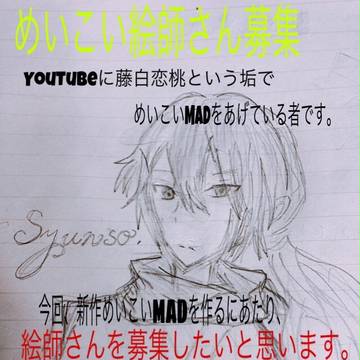 めいこい絵師さん募集
YouTubeに藤白恋桃という垢で
めいこいMADをあげている者です。
Syunso.
今回、新作めいこいMADを作るにあたり、
絵師さんを募集したいと思います。